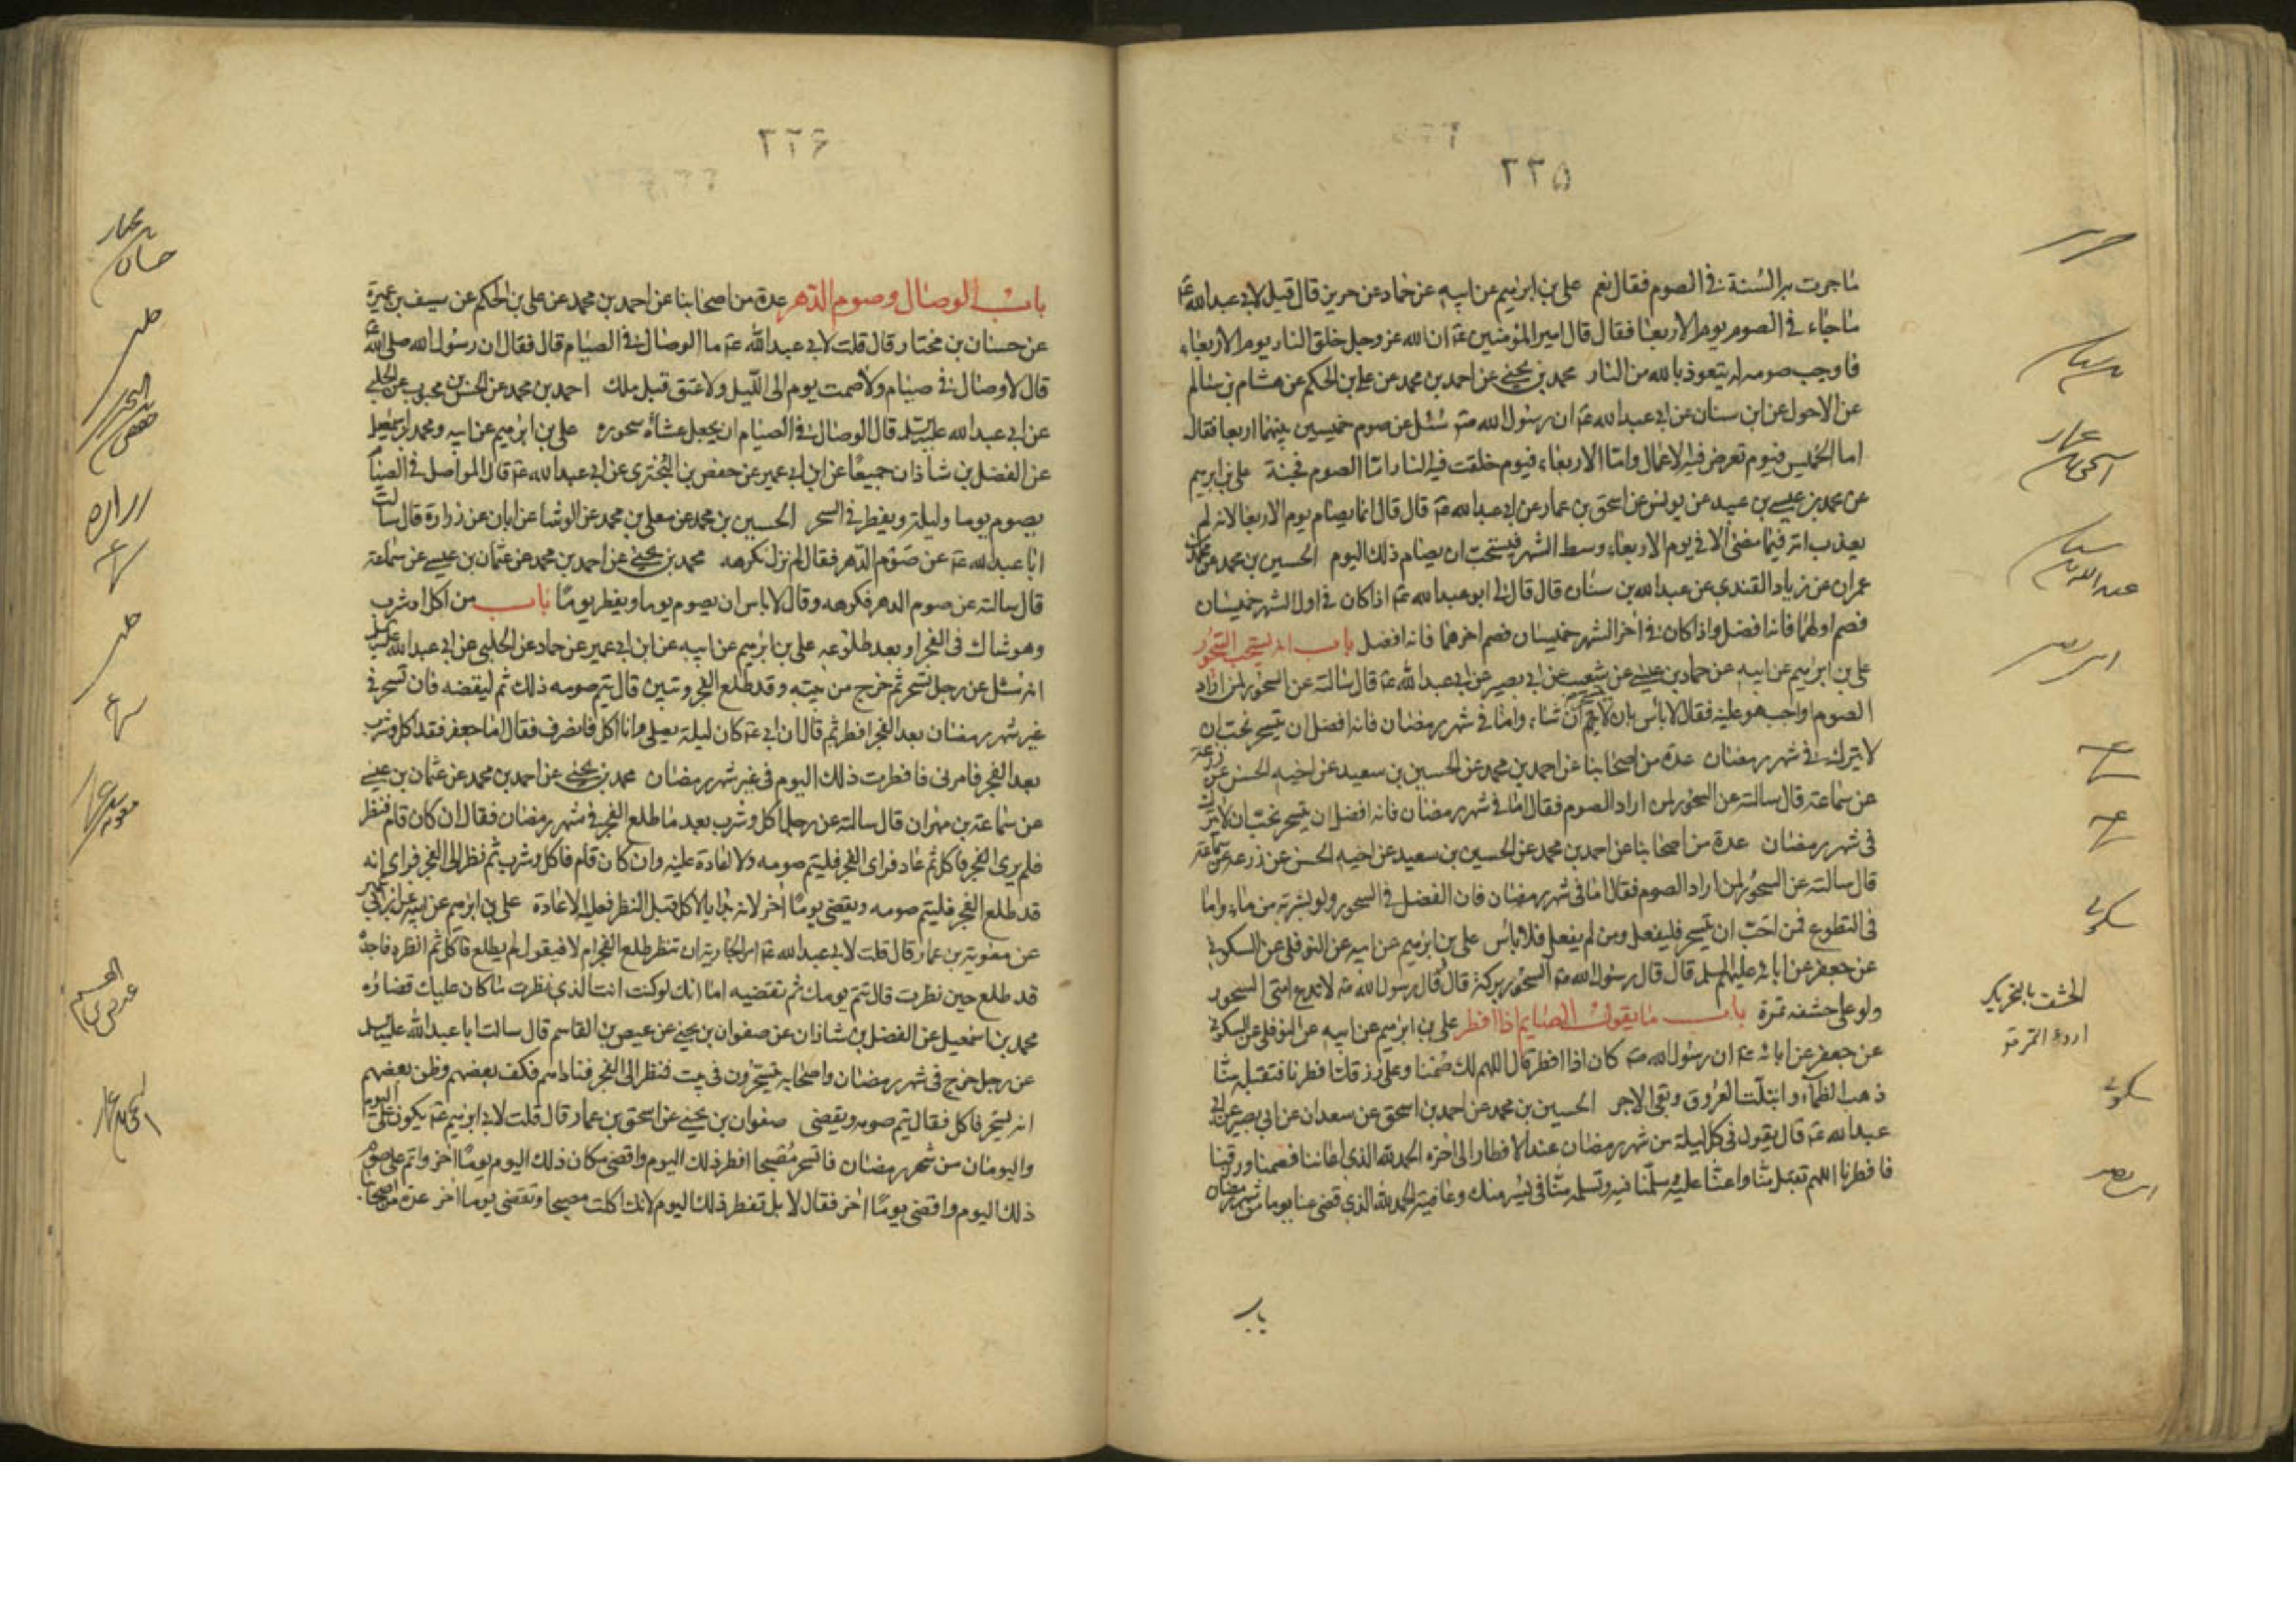 ٢٢٥
ماجرت به السنة في الصوم فقال نعم علي بن ابرهيم عن ابيه عن حماد عن حريز قال قيل لابي عبدالله ع
ما جاء في الصوم يوم الاربعا فقال قال امير المؤمنين ع ان الله عز وجل خلق النار يوم الاربعاء
فاوجب صومه ليتعوذ بالله من النار محمد بن يحيى عن احمد بن محمد عن علي بن الحكم عن هشام بن سالم
عن الاحول عن ابن سنان عن ابي عبدالله ع ان رسول الله ص سئل عن صوم خميسين بينهما اربعا فقال
اما الخميس فيوم تعرض فيه الاعمال واما الاربعاء فيوم خلقت فيه النار اما الصوم فجنة علي بن ابرهيم
عن محمد بن عيسى بن عبيد عن يونس عن اسحق بن عمار عن ابي عبدالله ع قال قال انما يصام يوم الاربعا لانه لم
يعذب امة فيما مضى الا في يوم الاربعاء وسط الشهر فيستحب ان يصام ذلك اليوم الحسين بن محمد عن محمد بن
عمران عن زياد القندي عن عبدالله بن سنان قال قال لي ابو عبدالله ع اذا كان في اول الشهر خميسان
فصم اولهما فانه افضل واذا كان في اخر الشهر خميسان فصم اخرهما فانه افضل باب انه يستحب السحور
علي بن ابرهيم عن ابيه عن حماد بن عيسى عن شعيب عن ابي بصير عن ابي عبدالله ع قال سالته عن السحور لمن اراد
الصوم اواجب هو عليه فقال لا باس بان لا يتسحر ان شاء واما في شهر رمضان فانه افضل ان يتسحر نحب ان
لا يترك في شهر رمضان عدة من اصحابنا عن احمد بن محمد عن الحسين بن سعيد عن اخيه الحسن عن زرعة
عن سماعة قال سالته عن السحور لمن اراد الصوم فقال اما في شهر رمضان فانه افضل ان يتسحر نحب ان لا يترك
في شهر رمضان عدة من اصحابنا عن احمد بن محمد عن الحسين بن سعيد عن اخيه الحسن عن زرعة عن سماعة
قال سالته عن السحور لمن اراد الصوم فقال اما في شهر رمضان فان الفضل في السحور ولو بشربة من ماء واما
في التطوع فمن احب ان يتسحر فليفعل ومن لم يفعل فلا باس علي بن ابرهيم عن ابيه عن النوفلي عن السكوني
عن جعفر عن ابائه عليهم السلم قال قال رسول الله ص السحور بركة قال قال رسول الله ص لا تدع امتي السحور
ولو على حشفه تمرة باب ما يقول الصايم اذا افطر علي بن ابرهيم عن ابيه عن النوفلي عن السكوني
عن جعفر عن ابائه ع ان رسول الله ص كان اذا افطر قال اللهم لك صمنا وعلى رزقك افطرنا فتقبله منا
ذهب الظماء وابتلت العروق وبقى الاجر الحسين بن محمد عن احمد بن اسحق عن سعدان عن ابي بصير عن ابي
عبدالله ع قال يقول في كل ليلة من شهر رمضان عند الافطار الى اخره الحمد لله الذي اعاننا فصمنا ورزقنا
فافطرنا اللهم تقبل منا واعنا عليه وسلمنا فيه وتسلمه منا في يسر منك وعافية الحمد لله الذي قضى عنا يوما من شهر رمضان
باب
حريز
اسحق بن عمار
عبدالله بن سنان
ابي بصير
سكوني
الحشف بالتحريك
اردء التمر
سكوني
ابي بصير
٢٢۶
باب الوصال وصوم الدهر عدة من اصحابنا عن احمد بن محمد عن علي بن الحكم عن سيف بن عميرة
عن حسان بن مختار قال قلت لابي عبدالله ع ما الوصال في الصيام قال فقال ان رسول الله صلى الله
قال لا وصال في صيام ولا صمت يوم الى الليل ولا عتق قبل ملك احمد بن محمد عن الحسن بن محبوب عن الحلبي
عن ابي عبدالله عليه السلم قال الوصال في الصيام ان يجعل عشاه سحوره علي بن ابرهيم عن ابيه ومحمد بن اسمعيل
عن الفضل بن شاذان جميعا عن ابن ابي عمير عن حفص بن البختري عن ابي عبدالله ع قال المواصل في الصيام
يصوم يوما وليلة ويفطر في السحر الحسين بن محمد عن معلى بن محمد عن الوشا عن ابان عن زرارة قال سالت
ابا عبدالله ع عن صوم الدهر فقال لم نزل نكرهه محمد بن يحيى عن احمد بن محمد عن عثمان بن عيسى عن سماعة
قال سالته عن صوم الدهر فكرهه وقال لا باس ان يصوم يوما ويفطر يوما باب من اكل او شرب
وهو شاك في الفجر او بعد طلوعه علي بن ابرهيم عن ابيه عن ابن ابي عمير عن حماد عن الحلبي عن ابي عبدالله عليه السلم
انه سئل عن رجل تسحر ثم خرج من بيته وقد طلع الفجر وتبين قال يتم صومه ذلك ثم ليقضه فان تسحر في
غير شهر رمضان بعد الفجر افطر ثم قال ان ابي ع كان ليلة يصلي وانا اكل فانصرف فقال اما جعفر فقد اكل وشرب
بعد الفجر فامرني فافطرت ذلك اليوم في غير شهر رمضان محمد بن يحيى عن احمد بن محمد عن عثمان بن عيسى
عن سماعة بن مهران قال سالته عن رجل اكل وشرب بعد ما طلع الفجر في شهر رمضان فقال ان كان قام فنظر
فلم يرى الفجر فاكل ثم عاد فراى الفجر فليتم صومه ولا اعادة عليه وان كان قام فاكل وشرب ثم نظر الى الفجر فراى انه
قد طلع الفجر فليتم صومه ويقضى يوما اخر لانه بدا بالاكل قبل النظر فعليه الاعادة علي بن ابرهيم عن ابيه عن ابن ابي عمير
عن معوية بن عمار قال قلت لابي عبدالله ع امر الجارية ان تنظر طلع الفجر ام لا فيقول لم يطلع فاكل ثم انظره فاجده
قد طلع حين نظرت قال تتم يومك ثم تقضيه اما انك لو كنت انت الذي نظرت ما كان عليك قضاؤه
محمد بن اسمعيل عن الفضل بن شاذان عن صفوان بن يحيى عن عيص بن القاسم قال سالت ابا عبدالله عليه السلم
عن رجل خرج في شهر رمضان واصحابه يتسحرون في بيت فنظر الى الفجر فناداهم فكف بعضهم وظن بعضهم
انه يسخر فاكل فقال يتم صومه ويقضى صفوان بن يحيى عن اسحق بن عمار قال قلت لابي ابرهيم ع يكون على اليوم
واليومان من شهر رمضان فاتسحر مصبحا افطر ذلك اليوم واقضى مكان ذلك اليوم يوما اخر واتم على صوم
ذلك اليوم واقضى يوما اخر فقال لا بل تفطر ذلك اليوم لانك اكلت مصبحا وتقضى يوما اخر عدة من اصحابنا
حفص بن البختري
زرارة
معوية بن عمار
عيص بن القسم
اسحق بن عمار